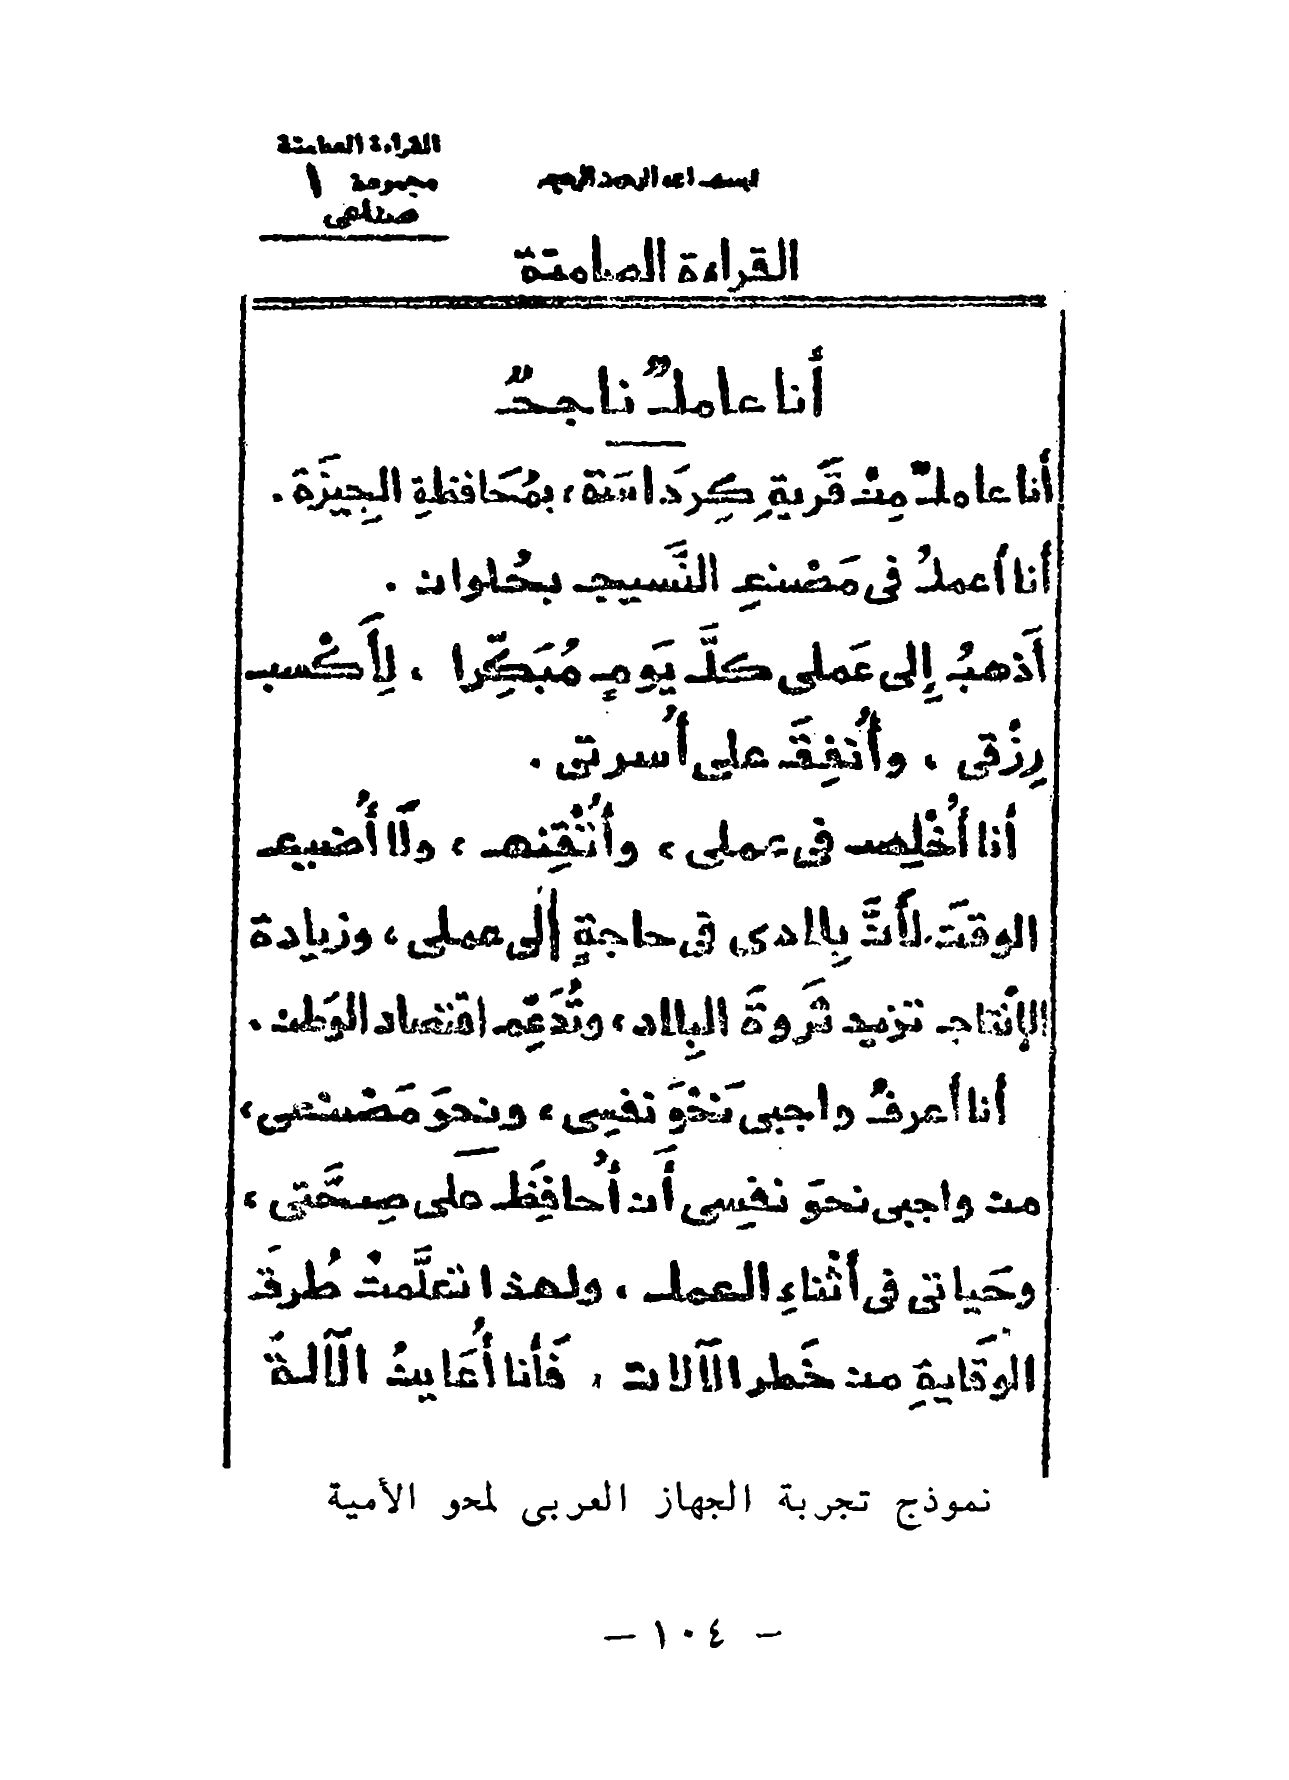 القراءة الصامتة
مجموعة ١
صناعى
بسم الله الرحمن الرحيم
القراءة الصامتة
أنا عاملٌ ناجحٌ
أنا عاملٌ مِنْ قَريةِ كِردَاسَة، بمُحَافظةِ الجِيزَة.
أنا أعملُ فى مَصْنعِ النَّسيج بحُلوان.
أَذهبُ إِلى عَملى كلَّ يَومٍ مُبَكِّرا، لِأَكْسب
رِزْقى، وأُنفِقَ على أُسرتى.
أنا أُخْلِص فى عملى، وأُتْقِنه، ولَا أُضيع
الوقتَ. لأَنَّ بِلادى فى حاجةٍ إلى عملى، وزيادة
الإنتاج تزيد ثَروةَ البِلاد، وتُدَعِّم اقتصاد الوَطن.
أنا أعرفُ واجبى نَحْوَ نفسِى، ونحوَ مَصْنعى،
من واجبى نحوَ نفسِى أَن أُحافِظَ على صِحَّتى،
وحَياتى فى أثْناءِ العمل، ولهذا تعلَّمتُ طُرقَ
الوِقَايةِ من خَطر الآلات، فَأنا أُعَاينُ الآلةَ
نموذج تجربة الجهاز العربى لمحو الأمية
— ١٠٤ —